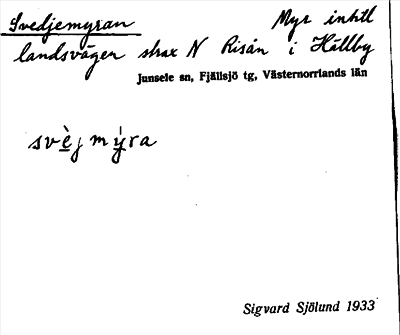 Svedjemyran Myr intill
landsvägen strax N Risån i Hällby
Junsele sn, Fjällsjö tg, Västernorrlands län
svè̲jmý̲ra
Sigvard Sjölund 1933